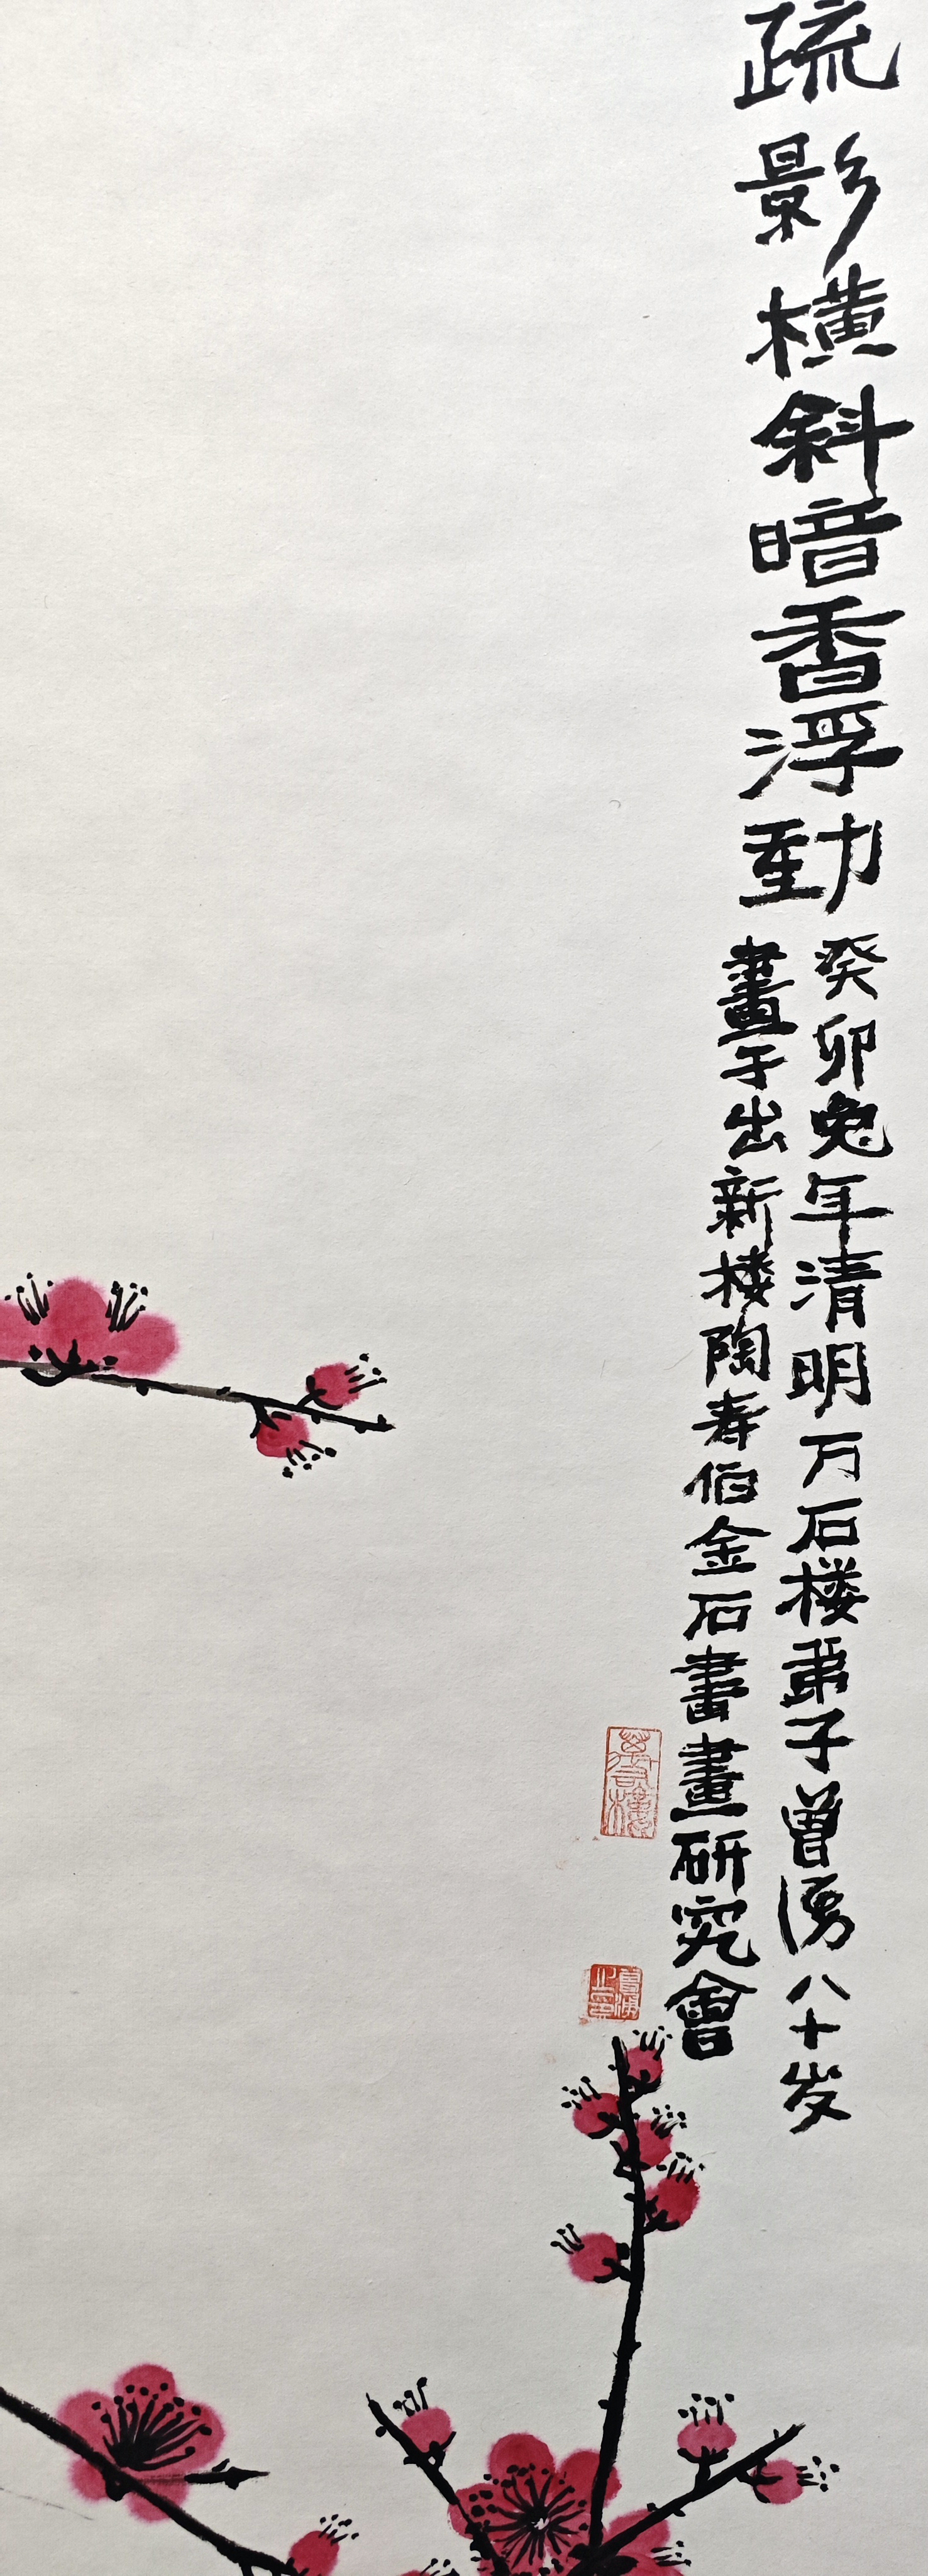 疏影橫斜暗香浮動
癸卯兔年清明万石楼弟子曾湧八十岁
畫于出新楼陶寿伯金石書畫研究會